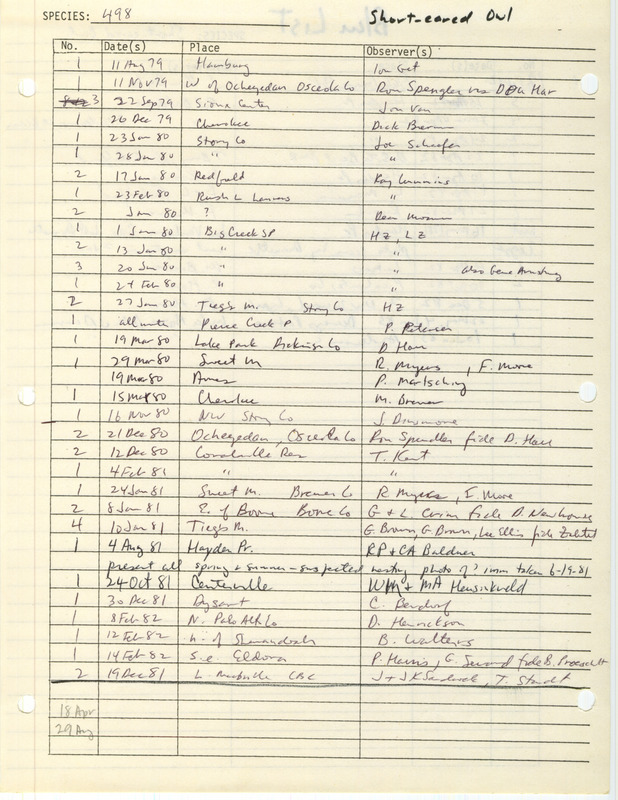 SPECIES: 498 Short-eared Owl
No. Date(s) Place Observer(s)
1 11 Aug 79 Hamburg
1 11 Nov 79 W of Ocheyedan Osceola Co Ron Spengler
3 22 Sep 79 Sioux Center Jon Van
1 26 Dec 79 Cherokee Dick Bierman
1 23 Jan 80 Story Co Joe Schaefer
1 28 Jan 80 " "
2 17 Jan 80 Redfield Kay Cummins
1 23 Feb 80 Rush L "
2 Jan 80 ? Dean Mosman
1 1 Jan 80 Big Creek SP HZ, LZ
2 13 Jan 80 " "
3 20 Jan 80 " " also Gene Armstrong
1 27 Feb 80 " "
2 27 Jan 80 Tiegs M. Story Co HZ
1 all winter Pierce Creek P P. Petersen
1 19 Mar 80 Lake Park Dickinson Co D Harr
1 29 Mar 80 Sweet M R. Myers, F. More
19 Mar 80 Ames P. Martsching
1 15 Mar 80 Cherokee M. Brewer
1 16 Nov 80 NW Story Co J Dinsmore
2 21 Dec 80 Ocheyedan, Osceola Co Ron Spengler fide D. Harr
2 12 Dec 80 Coralville Res T. Kent
1 4 Feb 81 " "
1 24 Jan 81 Sweet M. Bremer Co R Myers, F. More
2 8 Jan 81 E. of Boone Boone Co G + L fide D. Newhouse
4 10 Jan 81 Tiegs M. G. Brown, G Brown, Lee Ellis fide
1 4 Aug 81 Hayden Pr. RP + CA Baldner
present all spring + summer - suspected nesting photo of ? imm taken 6-19-81
1 24 Oct 81 Centerville WM + MA Heusinkveld
1 30 Dec 81 Dysart C. Bendorf
1 8 Feb 82 N. Palo Alto Co D. Henrickson
1 12 Feb 82 n. of Shenandoah B. Walters
1 14 Feb 82 s.e. Eldora P. Harris, fide B. Proescholdt
2 19 Dec 81 L CBC J + JK Sandrock, T. Staudt
18 Apr
29 Aug